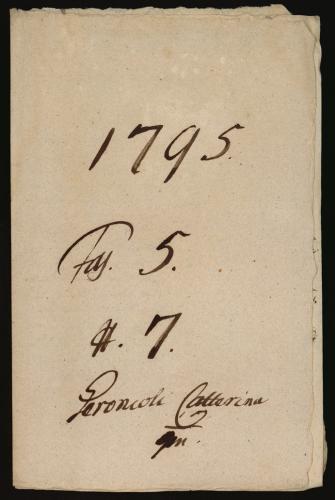 1795.
Fas. 5.
N. 7.
Geronoli Catterina
qm.